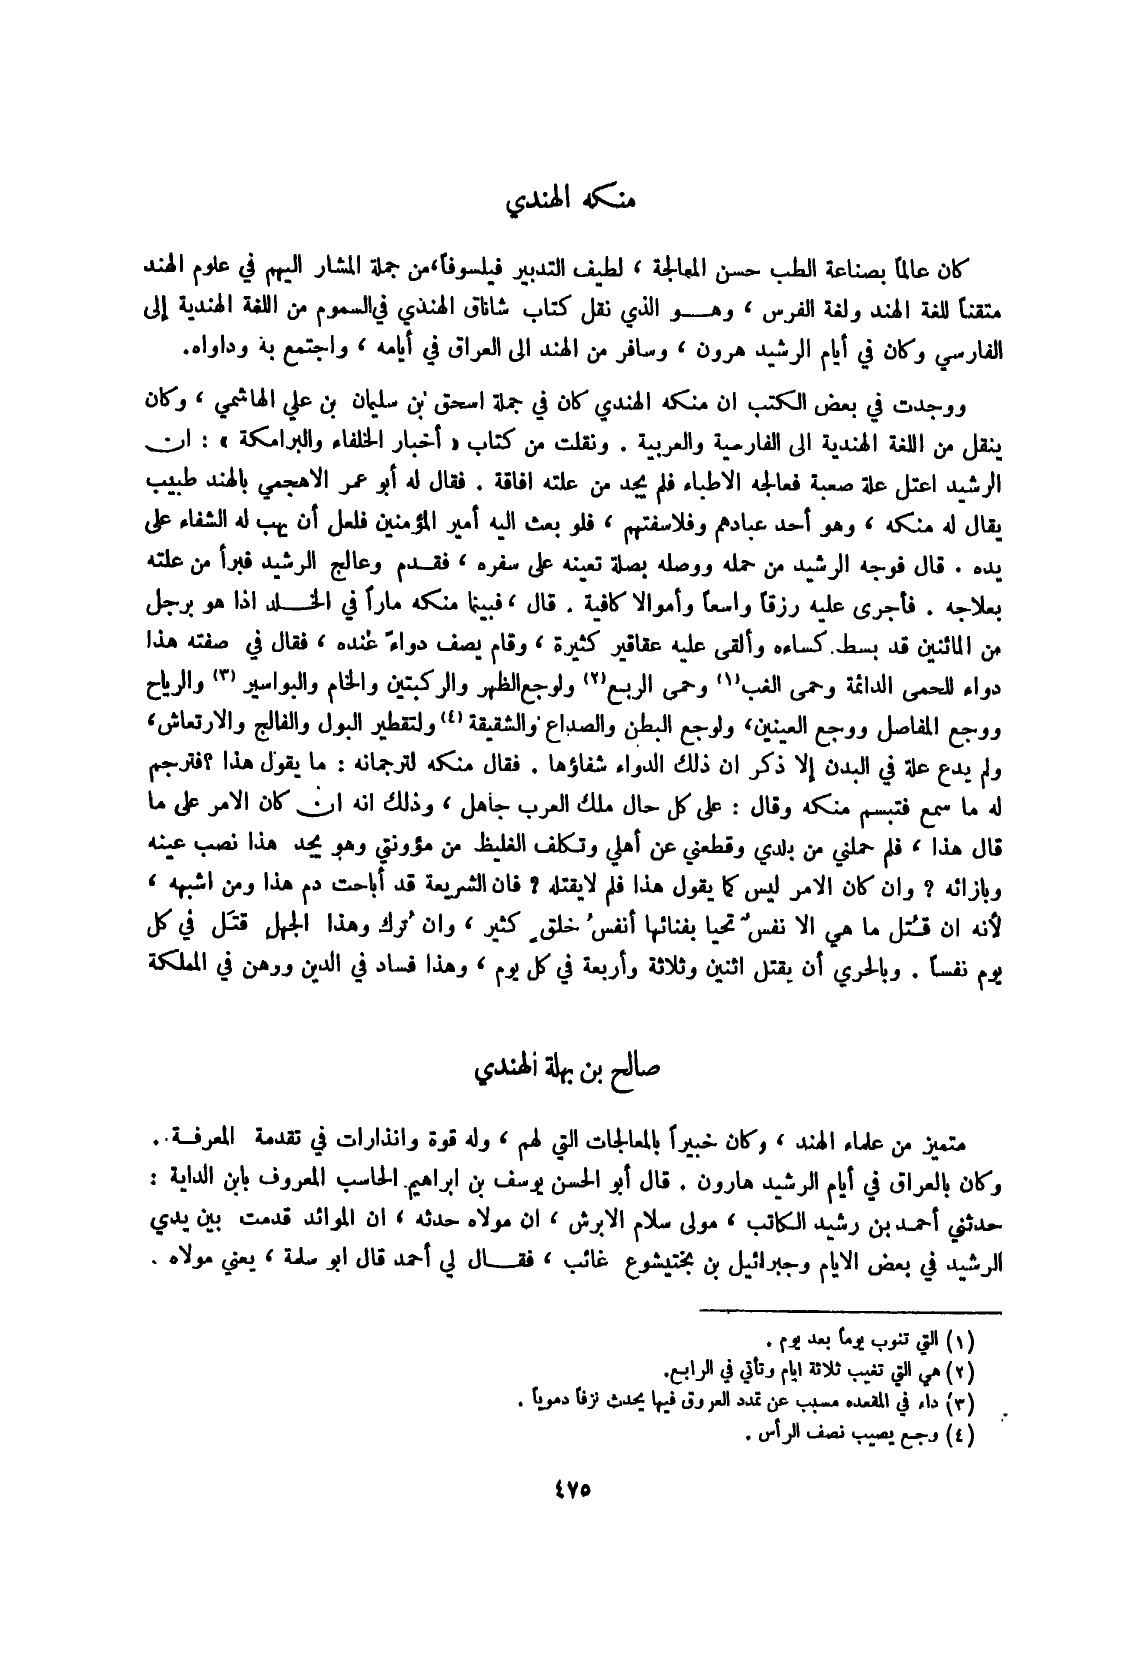 منكه الهندي
كان عالماً بصناعة الطب حسن المعالجة ، لطيف التدبير فيلسوفاً،من جملة المشار اليهم في علوم الهند
متقناً للغة الهند ولغة الفرس ، وهــو الذي نقل كتاب شاناق الهندي في السموم من اللغة الهندية إلى
الفارسي وكان في أيام الرشيد هرون ، وسافر من الهند الى العراق في أيامه ، واجتمع به وداواه.
ووجدت في بعض الكتب ان منكه الهندي كان في جملة اسحق بن سليمان بن علي الهاشمي ، وكان
ينقل من اللغة الهندية الى الفارسية والعربية . ونقلت من كتاب « أخبار الخلفاء والبرامكة » : ان
الرشيد اعتل علة صعبة فعالجه الاطباء فلم يجد من علته افاقة . فقال له أبو عمر الاهجمي بالهند طبيب
يقال له منكه ، وهو أحد عبادهم وفلاسفتهم ، فلو بعث اليه أمير المؤمنين فلعل أن يهب له الشفاء على
يده . قال فوجه الرشيد من حمله ووصله بصلة تعينه على سفره ، فقـدم وعالج الرشيد فبرأ من علته
بعلاجه . فأجرى عليه رزقاً واسعاً وأموالا كافية . قال ، فبينما منكه ماراً في الخـــلد اذا هو برجل
من المائنين قد بسط كساءه وألقى عليه عقاقير كثيرة ، وقام يصف دواءً عنده ، فقال في صفته هذا
دواء للحمى الدائمة وحمى الغب(١) وحمى الربع(٢) ولوجع الظهر والركبتين والخام والبواسير (٣) والرياح
ووجع المفاصل ووجع العينين، ولوجع البطن والصداع والشقيقة (٤) ولتقطير البول والفالج والارتعاش،
ولم يدع علة في البدن إلا ذكر ان ذلك الدواء شفاؤها . فقال منكه لترجمانه : ما يقول هذا ؟فترجم
له ما سمع فتبسم منكه وقال : على كل حال ملك العرب جاهل ، وذلك انه ان كان الامر على ما
قال هذا ، فلم حملني من بلدي وقطعني عن أهلي وتكلف الغليظ من مؤونتي وهو يجد هذا نصب عينه
وبازائه ؟ وان كان الامر ليس كما يقول هذا فلم لايقتله ؟ فان الشريعة قد أباحت دم هذا ومن اشبهه ،
لأنه ان قُتل ما هي الا نفسٌ تحيا بفنائها أنفسُ خلقٍ كثير ، وان تُرك وهذا الجهل قتَل في كل
يوم نفساً . وبالحري أن يقتل اثنين وثلاثة وأربعة في كل يوم ، وهذا فساد في الدين ورهن في المملكة
صالح بن بهلة الهندي
متميز من علماء الهند ، وكان خبيراً بالمعالجات التي لهم ، وله قوة وانذارات في تقدمة المعرفـة .
وكان بالعراق في أيام الرشيد هارون . قال أبو الحسن يوسف بن ابراهيم الحاسب المعروف بابن الداية :
حدثني أحمد بن رشيد الكاتب ، مولى سلام الابرش ، ان مولاه حدثه ، ان الموائد قدمت بين يدي
الرشيد في بعض الايام وجبرائيل بن بختيشوع غائب ، فقـــال لي أحمد قال ابو سلمة ، يعني مولاه .
(١) التي تنوب يوماً بعد يوم .
(٢) هي التي تغيب ثلاثة ايام وتأتي في الرابع.
(٣) داء في المقعده مسبب عن تمدد العروق فيها يحدث نزفاً دموياً .
(٤) وجع يصيب نصف الرأس .
٤٧٥